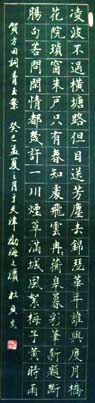 凌波不過橫塘路但目送芳塵去錦瑟華年誰與度月橋
花院瑣窗朱戶只有春知處飛雲冉冉蘅皋暮彩筆新題斷
腸句若問閑情都幾許一川煙草滿城風絮梅子黃時雨
賀方回詞青玉案 癸巳孟夏之月于天津渤海之濱 杜